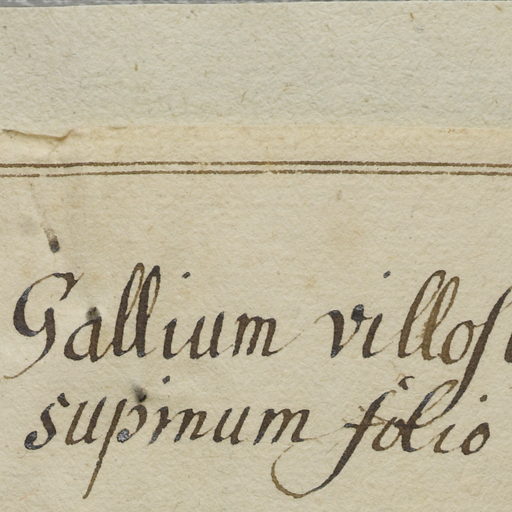 Gallium villos
supinum folio